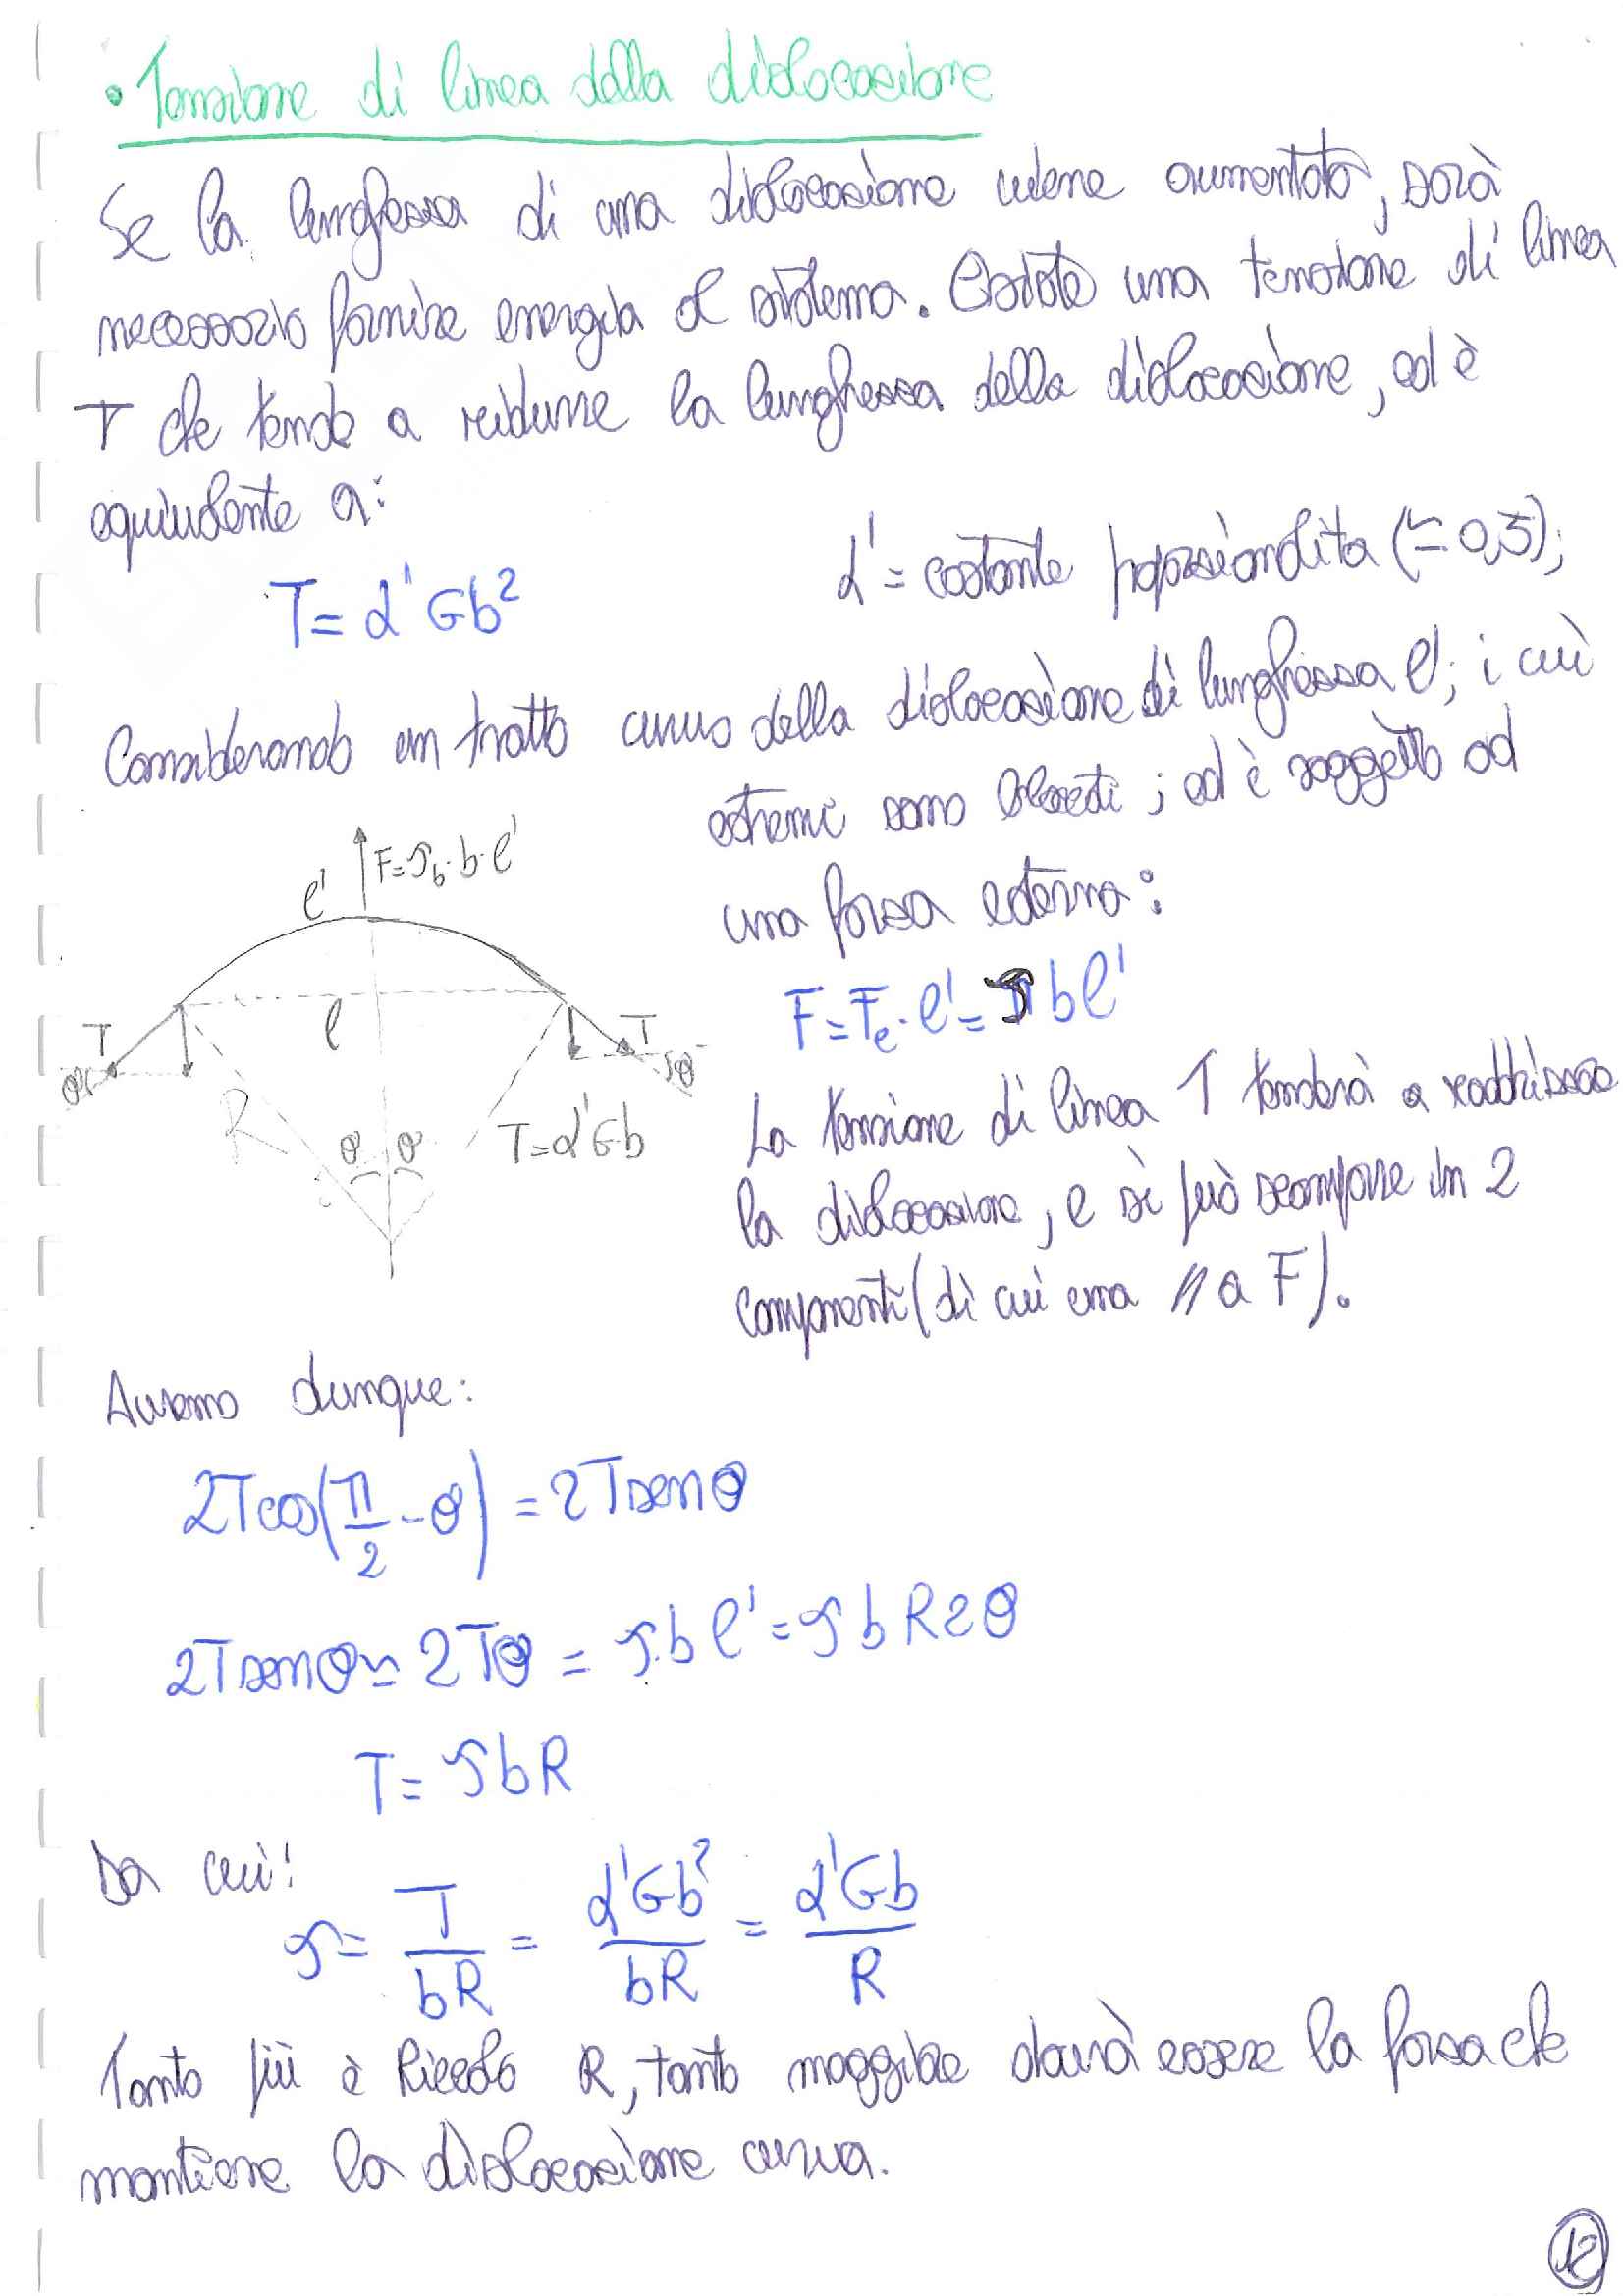 • Tensione di linea della dislocazione
Se la lunghezza di una dislocazione viene aumentata, sarà
necessario fornire energia al sistema. Esiste una tensione di linea
T che tende a ridurre la lunghezza della dislocazione, ed è
equivalente a:
T = α' G b²
α' = costante proporzionalità (≃ 0,5);
Considerando un tratto curvo della dislocazione di lunghezza l'; i cui
estremi sono bloccati; ed è soggetto ad
una forza esterna:
F = τ_b · b · l'
l'
l
T
T
θ
θ
R
θ θ
T = α' G b
F = F_e · l' = τ b l'
La tensione di linea T tenderà a raddrizzare
la dislocazione, e si può scomporre in 2
componenti (di cui una // a F).
Avremo dunque:
2T cos(π/2 - θ) = 2T sen θ
2T sen θ ≃ 2Tθ = τ b l' = τ b R 2θ
T = τ b R
Da cui:
τ = T/bR = α'Gb²/bR = α'Gb/R
Tanto più è piccolo R, tanto maggiore dovrà essere la forza che
mantiene la dislocazione curva.
12